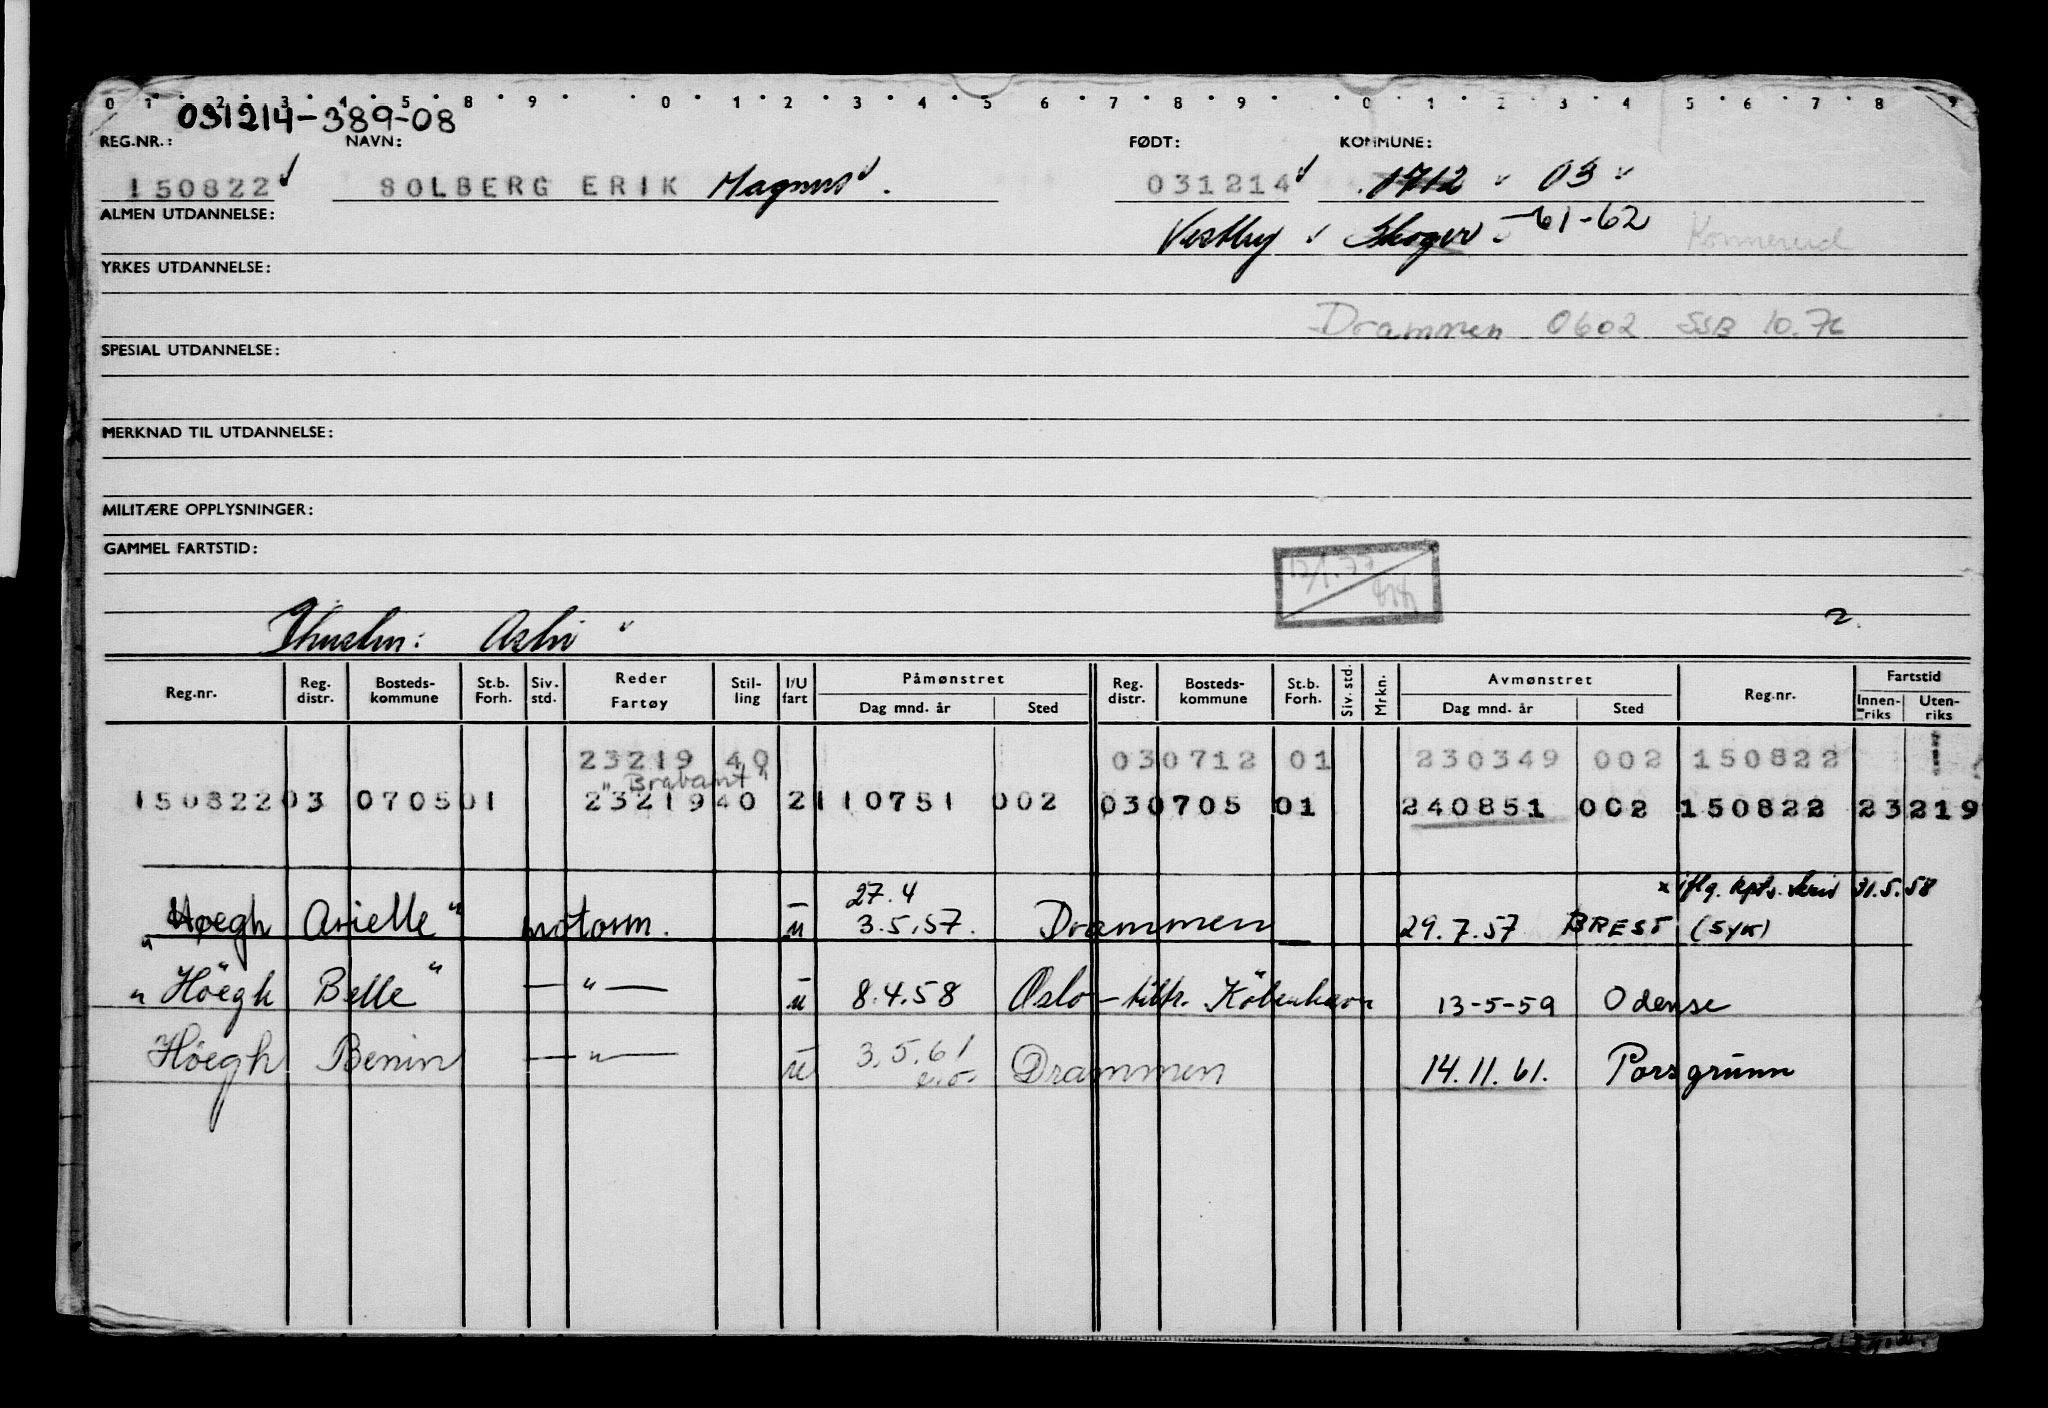 0 1 2 3 4 5 8 9 0 1 2 3 4 5 6 7 8 9 0 1 2 3 4 5 6 7 8 9
031214-389-08
REG.NR.: NAVN: FØDT: KOMMUNE:
150822 SOLBERG ERIK Magnus. 031214 0712 03
ALMEN UTDANNELSE: Vestby Skoger 61-62 Konnerud
YRKES UTDANNELSE:
Drammen 0602 SSB 10.76
SPESIAL UTDANNELSE:
MERKNAD TIL UTDANNELSE:
MILITÆRE OPPLYSNINGER:
GAMMEL FARTSTID:
2.
Hustru: Aslvi
Reg.nr. Reg. distr. Bosteds-kommune St.b. Forh. Siv. std. Reder Fartøy Stil-ling I/U fart Påmønstret Dag mnd. år Sted Reg. distr. Bosteds-kommune St.b. Forh. Siv. std. Mrkn. Avmønstret Dag mnd. år Sted Reg.nr. Fartstid Innen-riks Uten-riks
23219 40 030712 01 230349 002 150822
"Brabant"
150822 03 0705 01 23219 40 2 110751 002 03 0705 01 240851 002 150822 23219
27.4 x iflg. kpts. skriv 31.5.58
"Høegh Arielle" motorm. u 3.5.57. Drammen 29.7.57 BREST (SYK)
"Höegh Belle" — " — u 8.4.58 Oslo - tiltr. Köbenhavn 13-5-59 Odense
Höegh Benin — " — u 3.5.61 Drammen 14.11.61. Porsgrunn